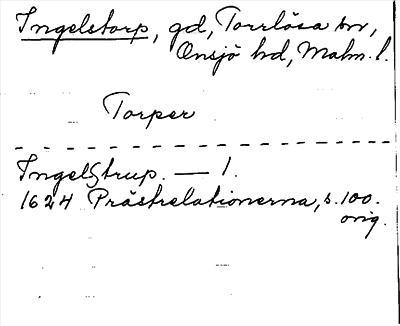 Ingelstorp, gd, Torrlösa sn,
Onsjö hd, Malm. l.
Torper
IngelStrup. — 1.
1624 Prästrelationerna, s. 100.
orig.